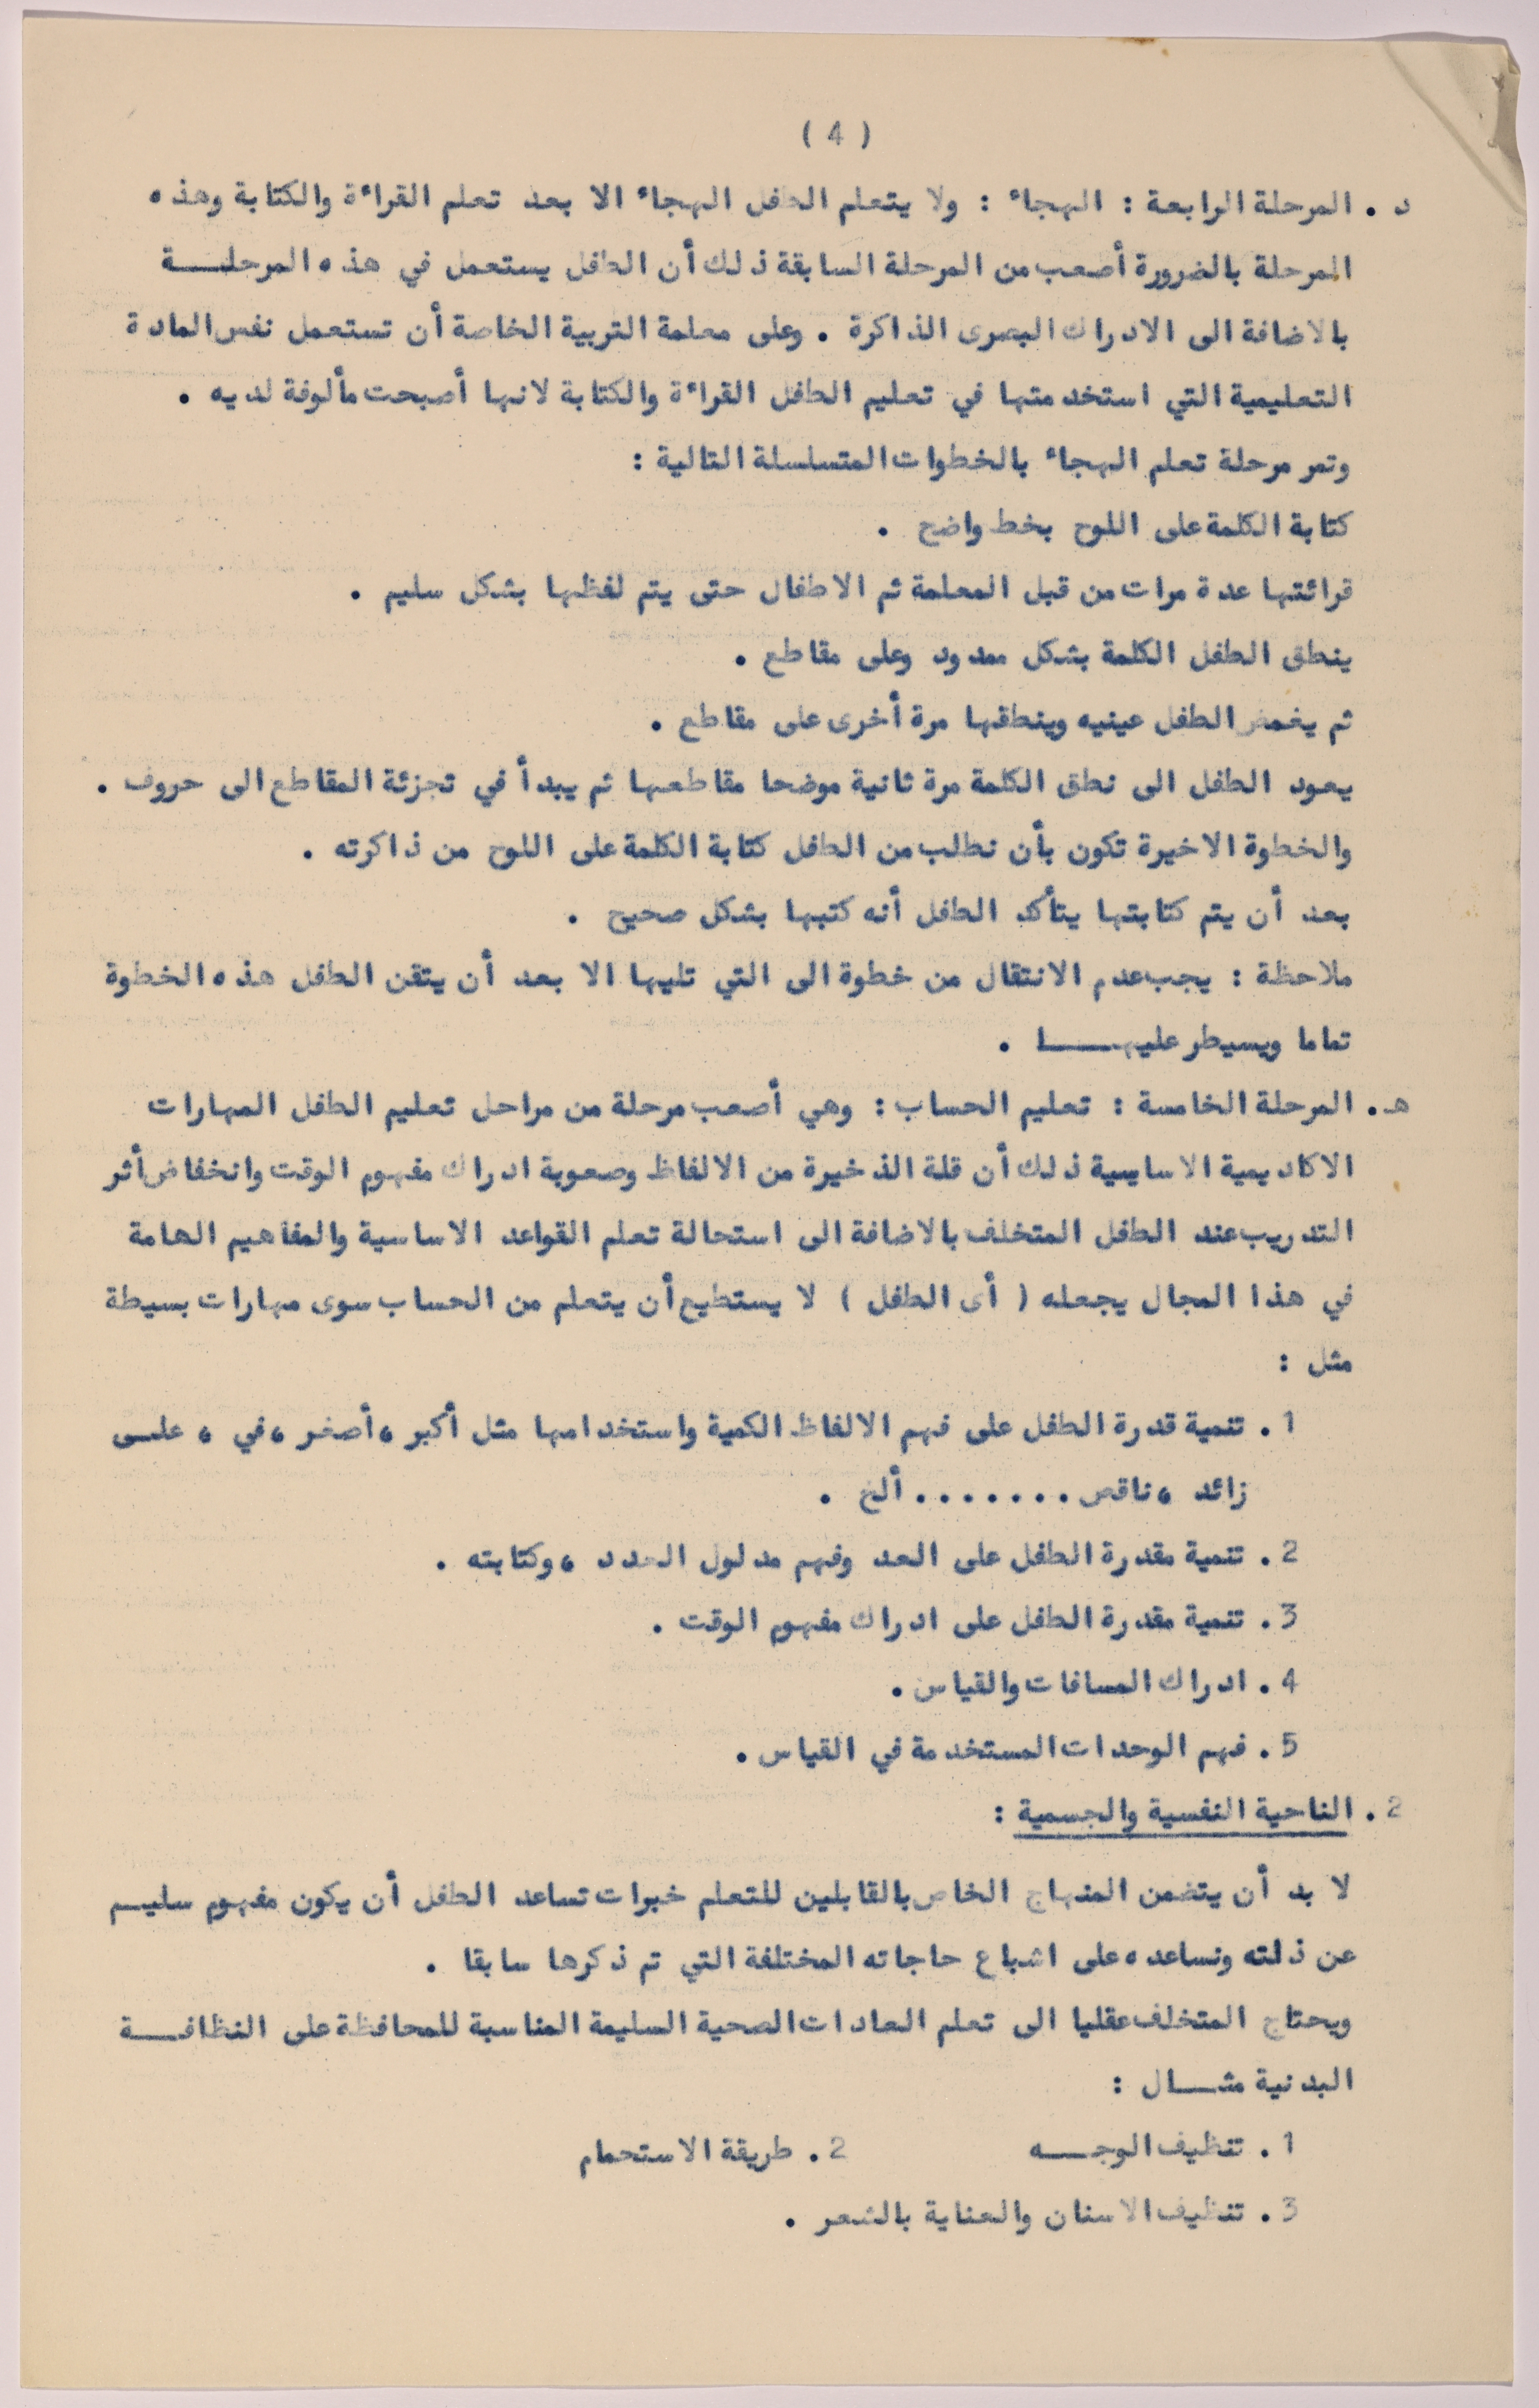 ( 4 )
د . المرحلة الرابعة : الهجاء : ولا يتعلم الطفل الهجاء الا بعد تعلم القراءة والكتابة وهذه
المرحلة بالضرورة أصعب من المرحلة السابقة ذلك أن الطفل يستعمل في هذه المرحلـــة
بالاضافة الى الادراك البصرى الذاكرة . وعلى معلمة التربية الخاصة أن تستعمل نفس المادة
التعليمية التي استخدمتها في تعليم الطفل القراءة والكتابة لانها أصبحت مألوفة لديه .
وتمر مرحلة تعلم الهجاء بالخطوات المتسلسلة التالية :
كتابة الكلمة على اللوح بخط واضح .
قرائتها عدة مرات من قبل المعلمة ثم الاطفال حتى يتم لفظها بشكل سليم .
ينطق الطفل الكلمة بشكل ممدود وعلى مقاطع .
ثم يغمض الطفل عينيه وينطقها مرة أخرى على مقاطع .
يعود الطفل الى نطق الكلمة مرة ثانية موضحا مقاطعها ثم يبدأ في تجزئة المقاطع الى حروف .
والخطوة الاخيرة تكون بأن نطلب من الطفل كتابة الكلمة على اللوح من ذاكرته .
بعد أن يتم كتابتها يتأكد الطفل أنه كتبها بشكل صحيح .
ملاحظة : يجب عدم الانتقال من خطوة الى التي تليها الا بعد أن يتقن الطفل هذه الخطوة
تماما ويسيطر عليهـــا .
هـ . المرحلة الخامسة : تعليم الحساب : وهي أصعب مرحلة من مراحل تعليم الطفل المهارات
الاكاديمية الاساسية ذلك أن قلة الذخيرة من الالفاظ وصعوبة ادراك مفهوم الوقت وانخفاض أثر
التدريب عند الطفل المتخلف بالاضافة الى استحالة تعلم القواعد الاساسية والمفاهيم الهامة
في هذا المجال يجعله ( أى الطفل ) لا يستطيع أن يتعلم من الحساب سوى مهارات بسيطة
مثل :
1 . تنمية قدرة الطفل على فهم الالفاظ الكمية واستخدامها مثل أكبر ، أصغر ، في ، علـى
زائد ، ناقص ....... ألخ .
2 . تنمية مقدرة الطفل على العد وفهم مدلول العدد ، وكتابته .
3 . تنمية مقدرة الطفل على ادراك مفهوم الوقت .
4 . ادراك المسافات والقياس .
5 . فهم الوحدات المستخدمة في القياس .
2 . الناحية النفسية والجسمية :
لا بد أن يتضمن المنهاج الخاص بالقابلين للتعلم خبرات تساعد الطفل أن يكون مفهوم سليـم
عن ذلته ونساعده على اشباع حاجاته المختلفة التي تم ذكرها سابقا .
ويحتاج المتخلف عقليا الى تعلم العادات الصحية السليمة المناسبة للمحافظة على النظافـــة
البدنية مثـــال :
1 . تنظيف الوجـــه 2 . طريقة الاستحمام
3 . تنظيف الاسنان والعناية بالشعر .